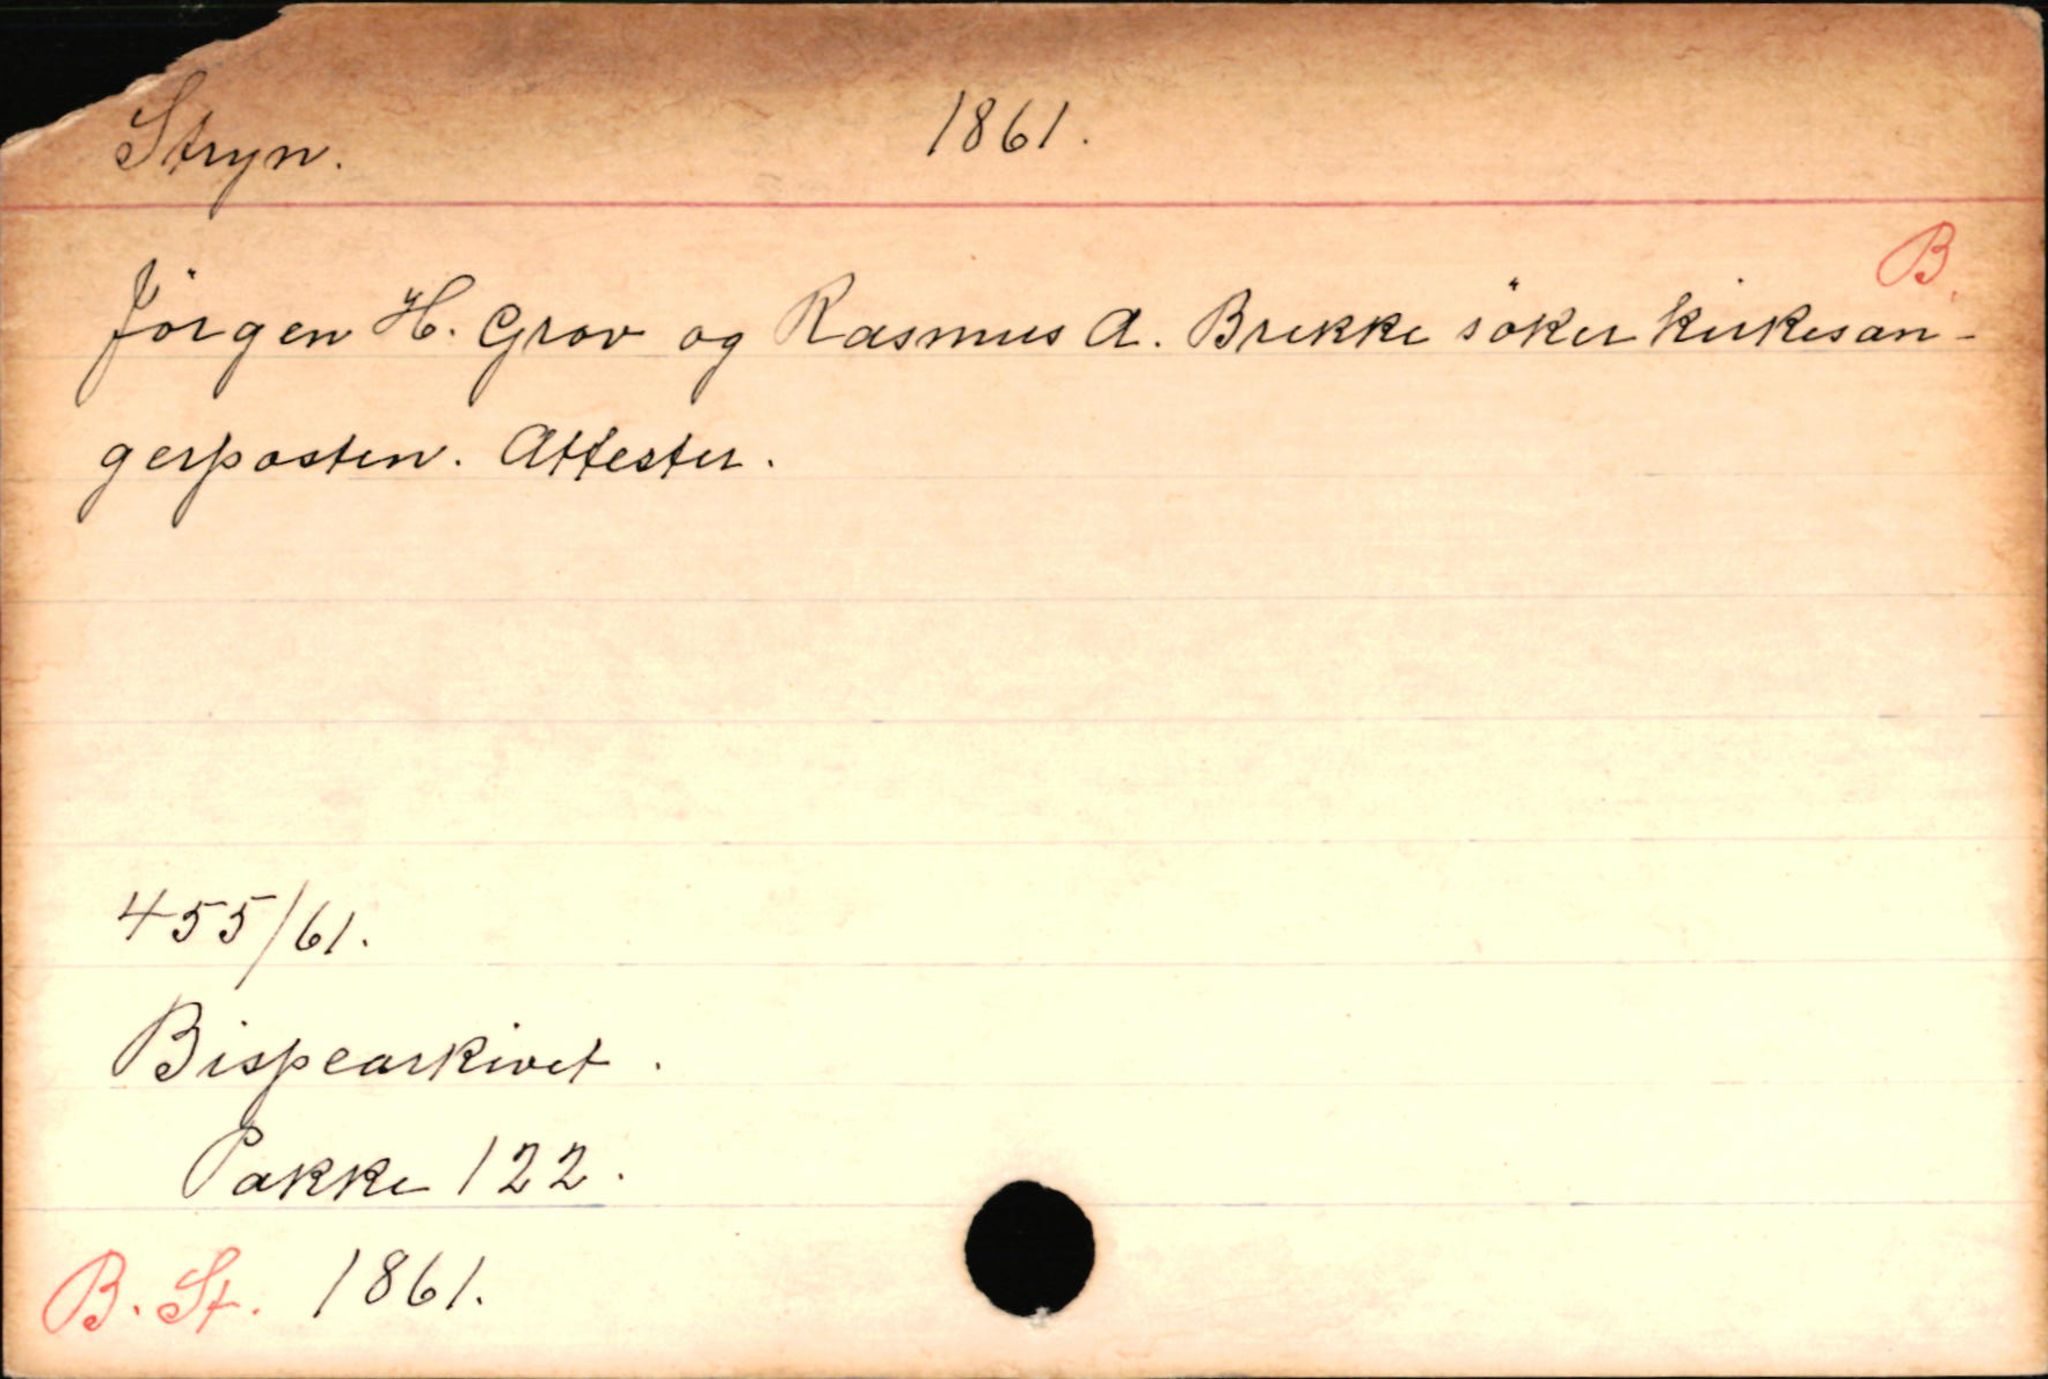 Stryn. 1861.
B.
Jörgen H. Grov og Rasmus A. Brekke söker kirkesan-
gerposten. Attester.
455/61.
Bispearkivet.
Pakke 122.
B. St. 1861.